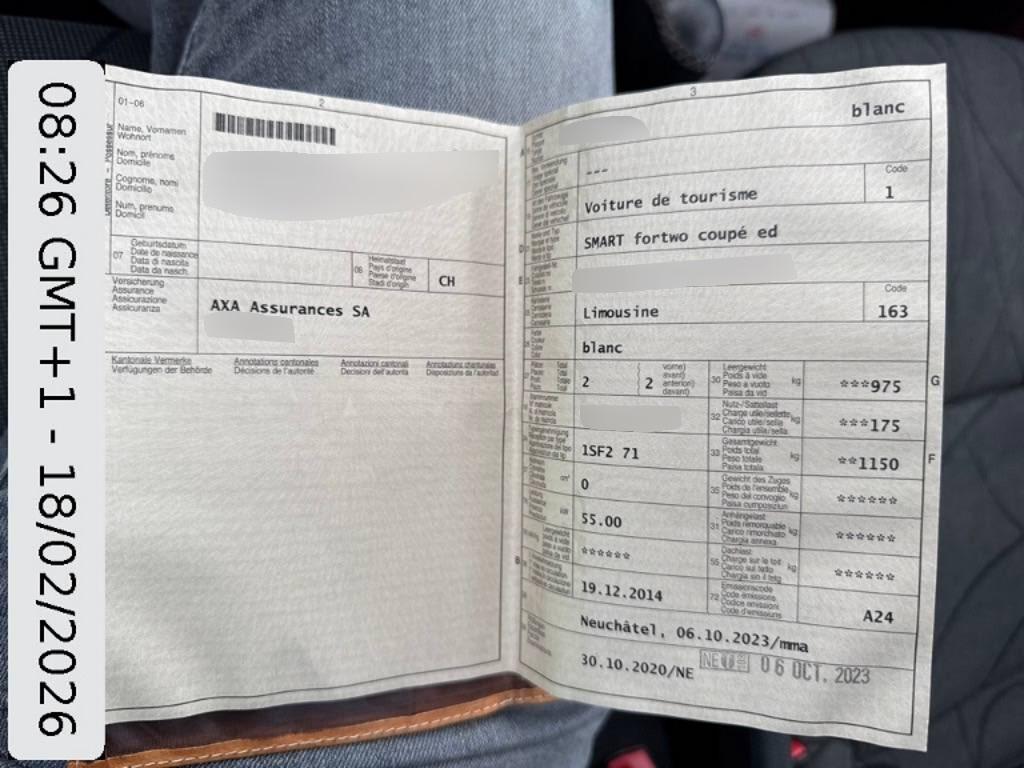 08:26 GMT+1 - 18/02/2026
01-06
2
Name, Vornamen
Wohnort
Nom, prénoms
Domicile
Cognome, nomi
Domicilio
Num, prenums
Domicil
07
Geburtsdatum
Date de naissance
Data di nascita
Data da nasch.
06
Heimatstaat
Pays d'origine
Paese d'origine
Stadi d'origin
CH
Versicherung
Assurance
Assicurazione
Assicuranza
AXA Assurances SA
Kantonale Vermerke
Verfügungen der Behörde
Annotations cantonales
Décisions de l'autorité
Annotazioni cantonali
Decisioni dell'autorità
Annotaziuns chantunalas
Disposiziuns da l'autoritad
3
blanc
A
---
Voiture de tourisme
Code
1
D
SMART fortwo coupé ed
E
Limousine
Code
163
blanc
2
2
vorne)
avant)
anteriori)
davant)
30
Leergewicht
Poids à vide
Peso a vuoto
Paisa da vid
kg
***975
G
32
Nutz-/Sattellast
Charge utile/sellette
Carico utile/sella
Chargia utila/sella
kg
***175
1SF2 71
33
Gesamtgewicht
Poids total
Peso totale
Paisa totala
kg
**1150
F
cm³
0
35
Gewicht des Zuges
Poids de l'ensemble
Peso del convoglio
Paisa cumposiziun
kg
******
kW
55.00
31
Anhängelast
Poids remorquable
Carico rimorchiato
Chargia annexa
kg
******
******
55
Dachlast
Charge sur le toit
Carico sul tetto
Chargia sin il tetg
kg
******
B
19.12.2014
72
Emissionscode
Code émissions
Codice emissioni
Code d'emissiuns
A24
Neuchâtel, 06.10.2023/mma
30.10.2020/NE
NE
06 OCT. 2023